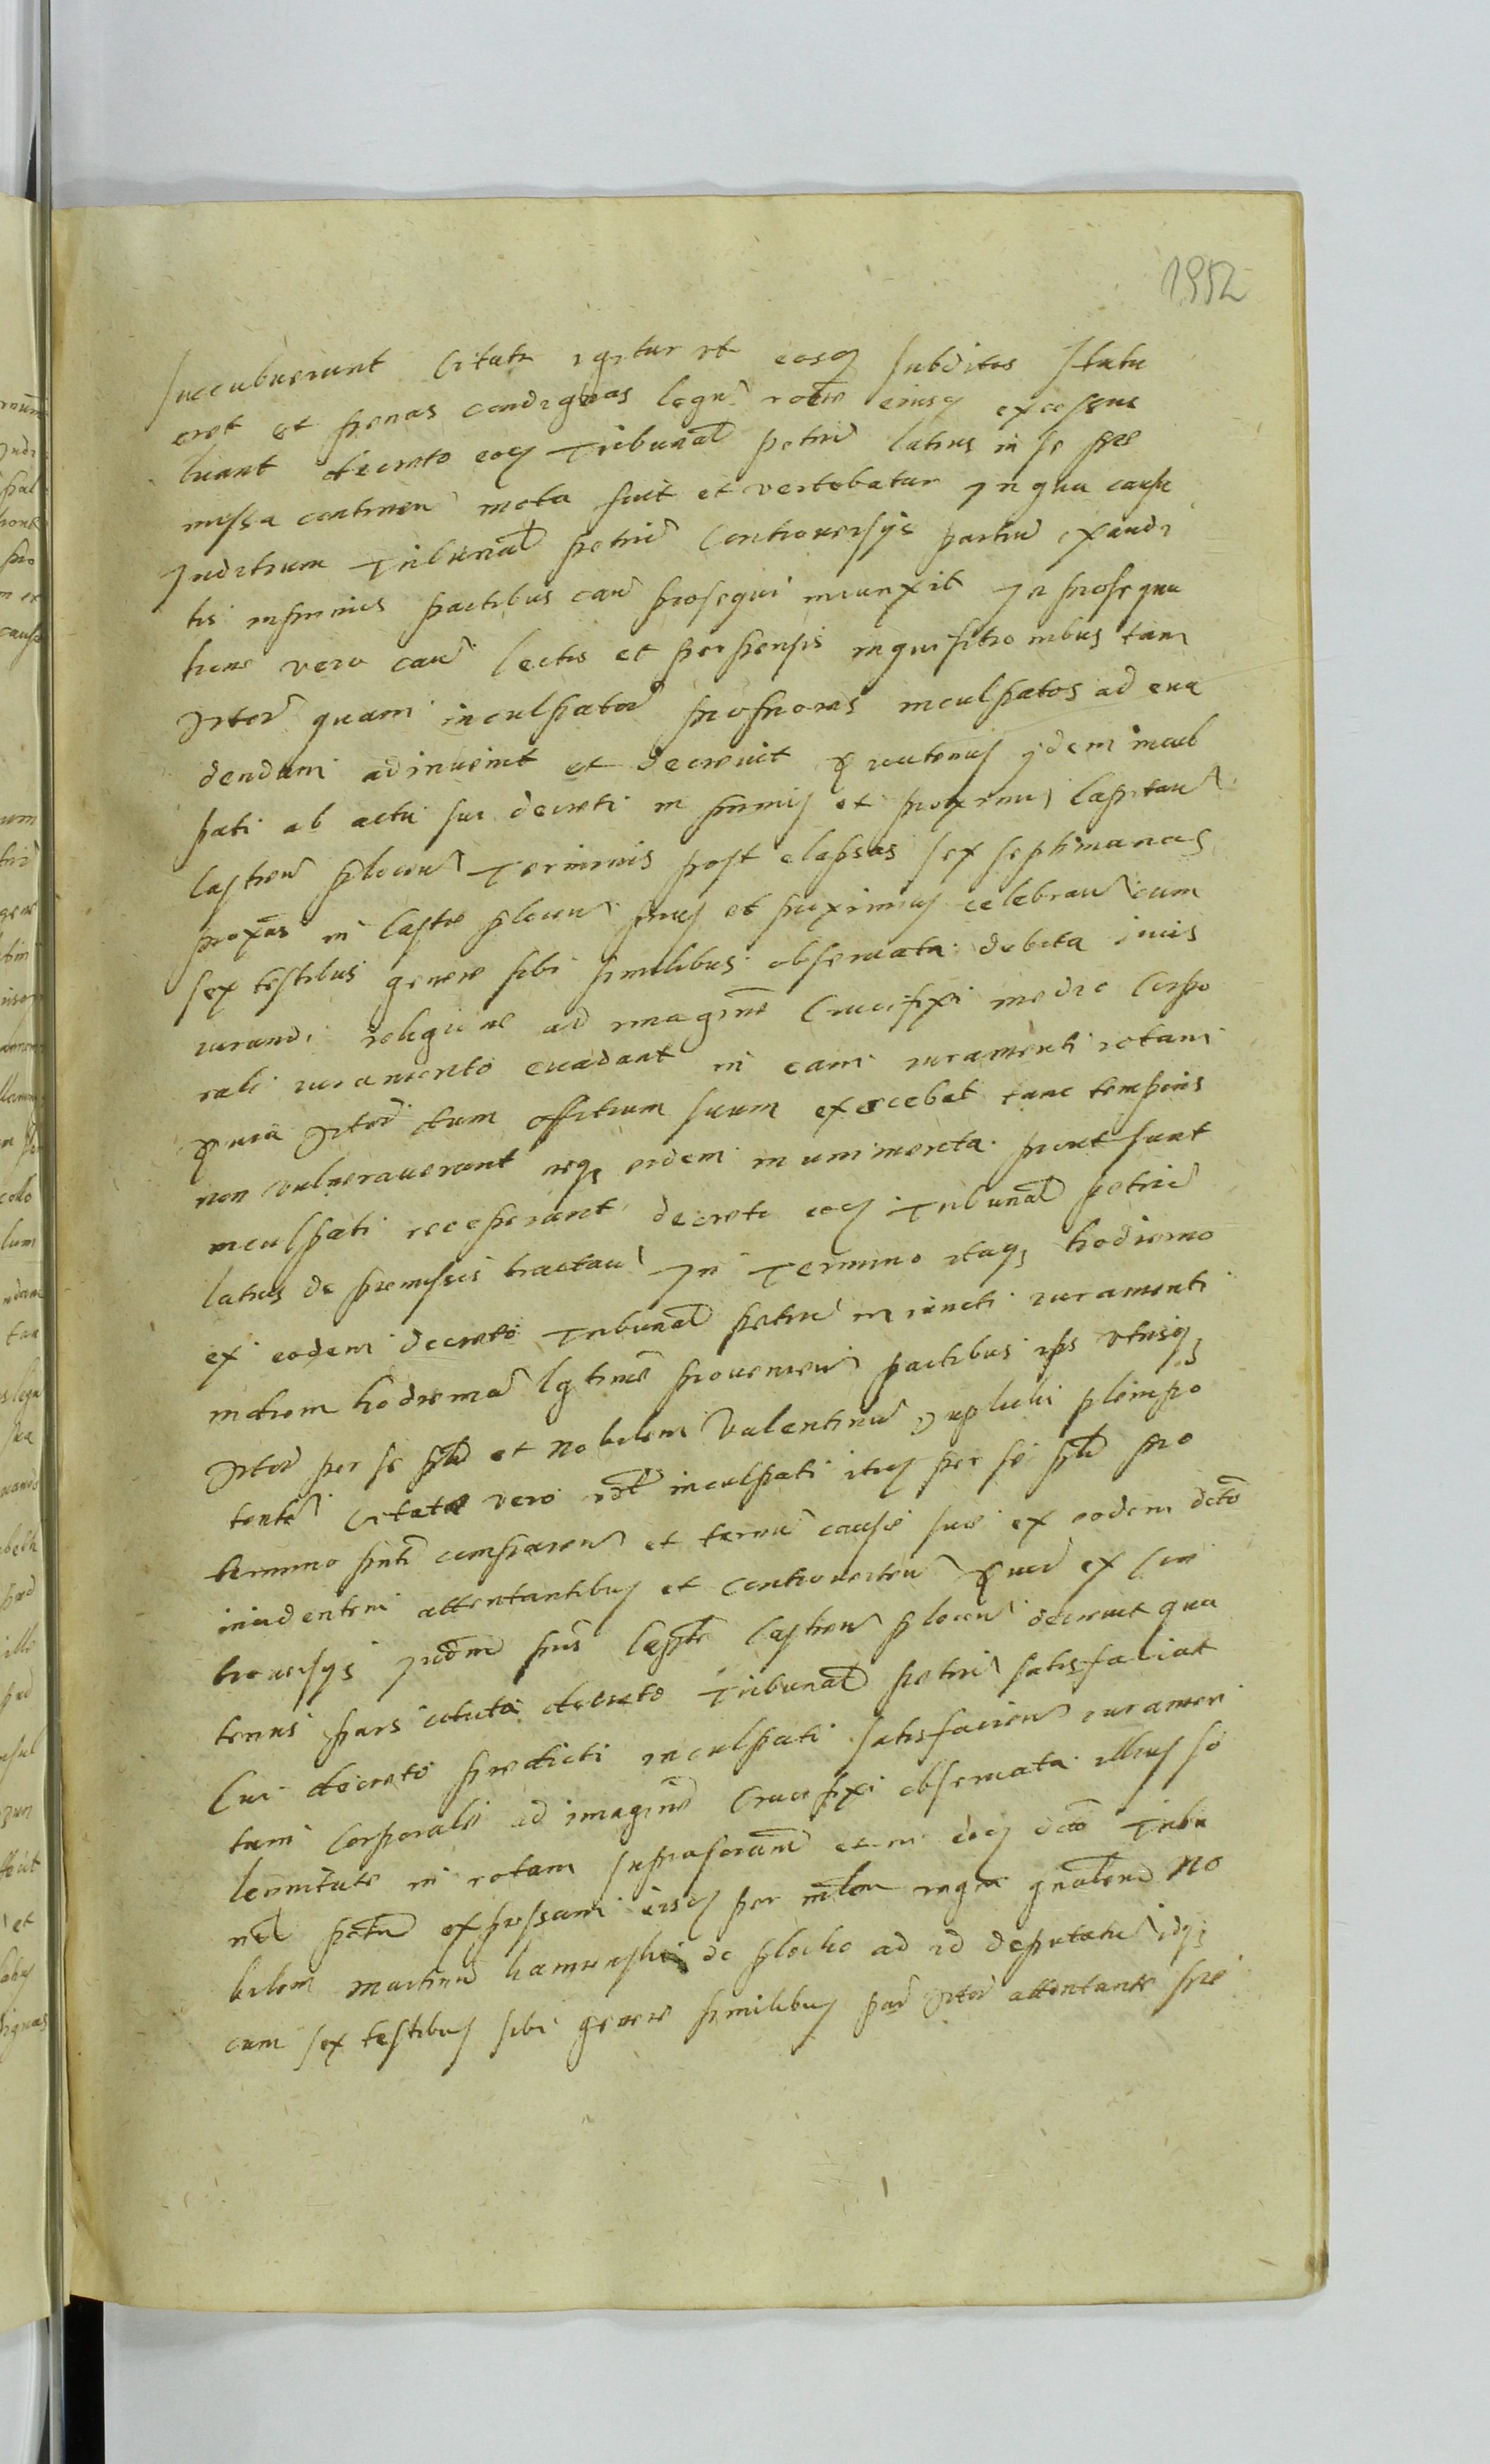 1952
succubuerunt Citata igitur ut eosq subditos statu
eret et penas condignas legu rone eiusq excessus
luant decreto eoq Tribunal petric latius in se pre
missa continen mota fuit et vertebatur In qua causa
Juditium Tribunal petric Controuersys partiu exaudi
tis inprimis partibus cau prosequi iniunxit In prosequu
tione vero cau lectis et perpensis inquisitionibus tam
Actor quam inculpator propriores inculpatos ad eua
dendum adinuenit et decreuit Quatenus ydem incul
pati ab actu sui decreti in primis et proximis Capitan
Castren plocen Terminis post elapsas sex septimanas
proxas in Castro plocen primis et proximis celebran cum
sex testibus genere sibi similibus obseruata debita iuris
iurandi religione ad imagine Crucifixi medio Corpo
rali iuramento euadant in eam iuramenti rotam
Quia Actor dum offitium suum exercebat tunc temporis
non vulnerauerunt neq eidem munimenta prout sunt
inculpati receperunt decreto eoq Tribunal petric
latius de premissis tractan In Termino itaq hodierno
ex eodem decreto Tribunal petric iniuncti iuramenti
indiem hodierna lgtime proueniens partibus ips vtrisq
Actor per se psl et Nobilem Valentinu plenipo
tente Citata vero inculpati itaq per se psl pro
termino pnti comparen et termin cause sue ex eodem dcto
incidentem attentantibus et controuerten Quod ex Con
trouersys Judm pns Capte Castren plocen decreuit qua
tenus pars citata decreto Tribunal petric satisfaciat
Cui decreto predicti inculpati satisfacien iuramen
tum Corporale ad imagine Crucifixi obseruata illius so
lennitate in rotam suprascram et in eoq dcto Tribu
nal petric expressam eisq per mlem regni gnalem No
bilem Martinu de plocko ad id deputatu idq
cum sex testibus sibi genere similibus pad Actor attentante pre